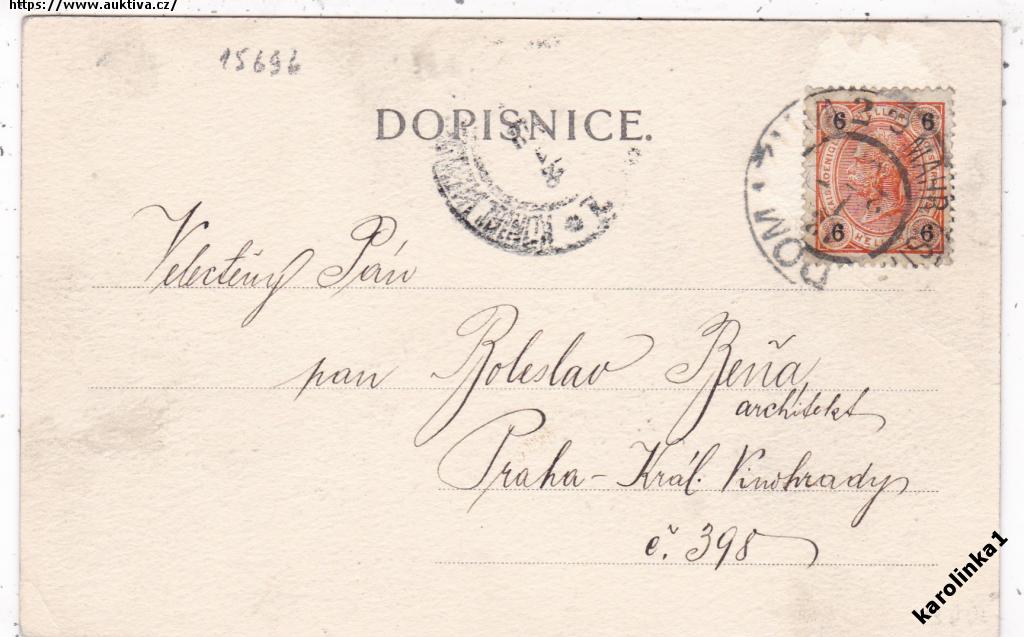 https://www.auktiva.cz/
15696
DOPISNICE.
6 HELLER 6
6 HELLER 6
Velectěný Pán
pan Boleslav Beňa,
architekt
Praha-Král. Vinohrady
č. 398
karolinka1